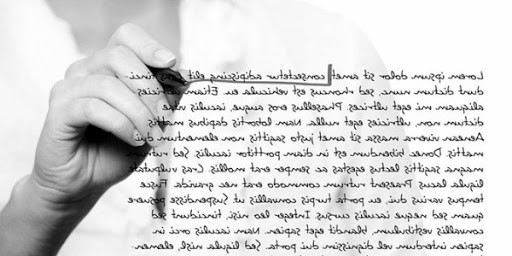 Lorem ipsum dolor sit amet consectetur adipiscing elit tinci-
dunt dictum nunc, sed rhoncus est vehicula eu. Etiam
aliquam mi eget ultrices. Phasellus eros augue, iaculis vitae
dictum non, ultricies eget nulla. Nam lobortis dapibus mattis
Aenean viverra massa sit amet justo sagittis non elementum dui
mattis. Donec bibendum est in diam porttitor iaculis. Sed rutrum
magna sagittis lectus egestas ac semper erat mollis. Cras vulputate
ligula lacus. Praesent rutrum commodo erat nec gravida. Fusce
tempus varius dui, eu porta turpis convallis ut. Suspendisse posuere
quam sed neque iaculis cursus. Integer leo nisi, tincidunt sed
convallis vestibulum, blandit eget sapien. Nam in orci in
sapien interdum vel dignissim dui porta. Sed ligula nisl, elemen-